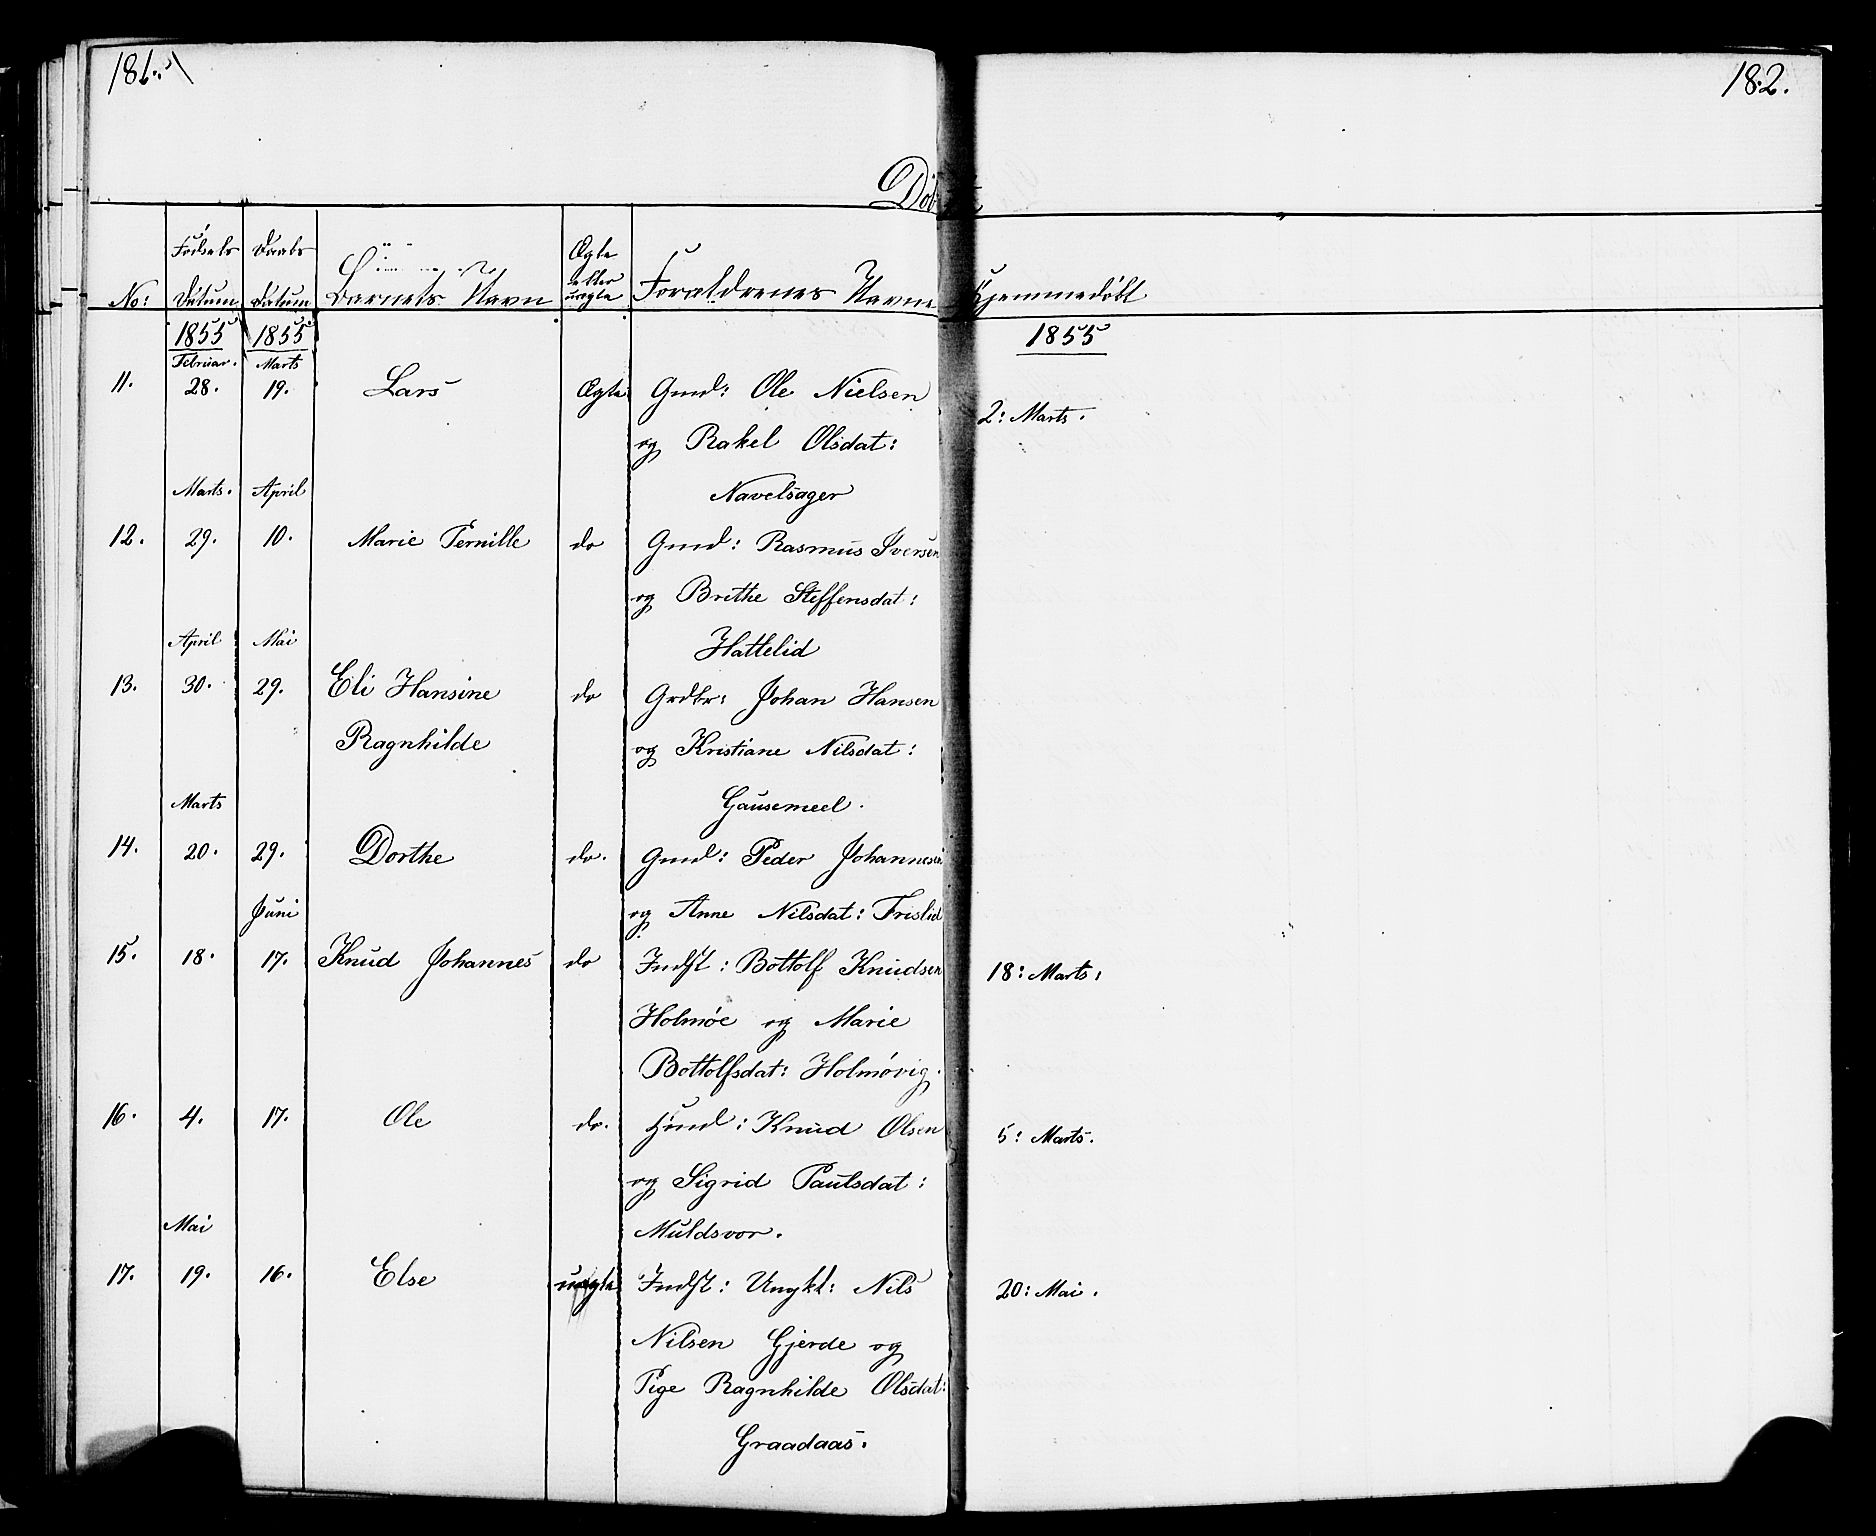 181.
182.
Døbte
No: Fødsels Datum Daabs Datum Barnets Navn Ægte eller uægte Forældrenes Navne Hjemmedøbt
1855 1855 1855
Februar. Marts
11. 28. 19. Lars Ægte Gmd: Ole Nielsen 2: Marts.
og Rakel Olsdat:
Marts. April Navelsager
12. 29. 10. Marie Pernille do Gmd: Rasmus Iversen
og Brithe Steffensdat:
April Mai Hattelid
13. 30. 29. Eli Hansine do Grdbr: Johan Hansen
Ragnhilde og Kristiane Nilsdat:
Marts Gausemeel.
14. 20. 29. Dorthe do. Gmd: Peder Johannesen
Juni og Anne Nilsdat: Frislid
15. 18. 17. Knud Johannes do Indst: Bottolf Knudsen 18: Marts:
Holmøe og Marie
Bottolfsdat: Holmøvig.
16. 4. 17. Ole do. Hmd: Knud Olsen 5: Marts.
og Sigrid Paulsdat:
Mai Muldsvor.
17. 19. 16. Else uægte Indst: Ungkl: Nils 20: Mai.
Nilsen Gjerde og
Pige Ragnhilde Olsdat:
Graadaas.